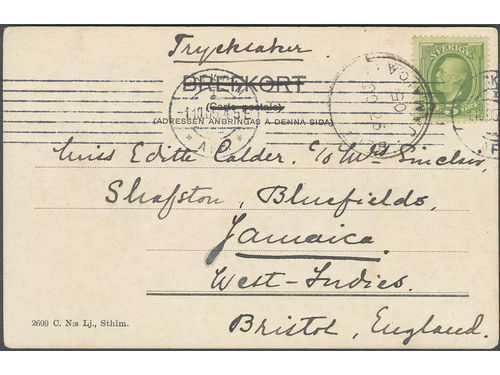 Trycksaker.
SVERIGE
BREFKORT
(Carte postale)
5 ÖRE 5
JAMAICA
(ADRESSEN ANBRINGAS Å DENNA SIDA)
Miss Editte Calder. C/o Mrs Sinclair,
Shafston, Bluefields,
Jamaica.
West-Indies.
Bristol, England.
2699 C. N:s Lj., Sthlm.